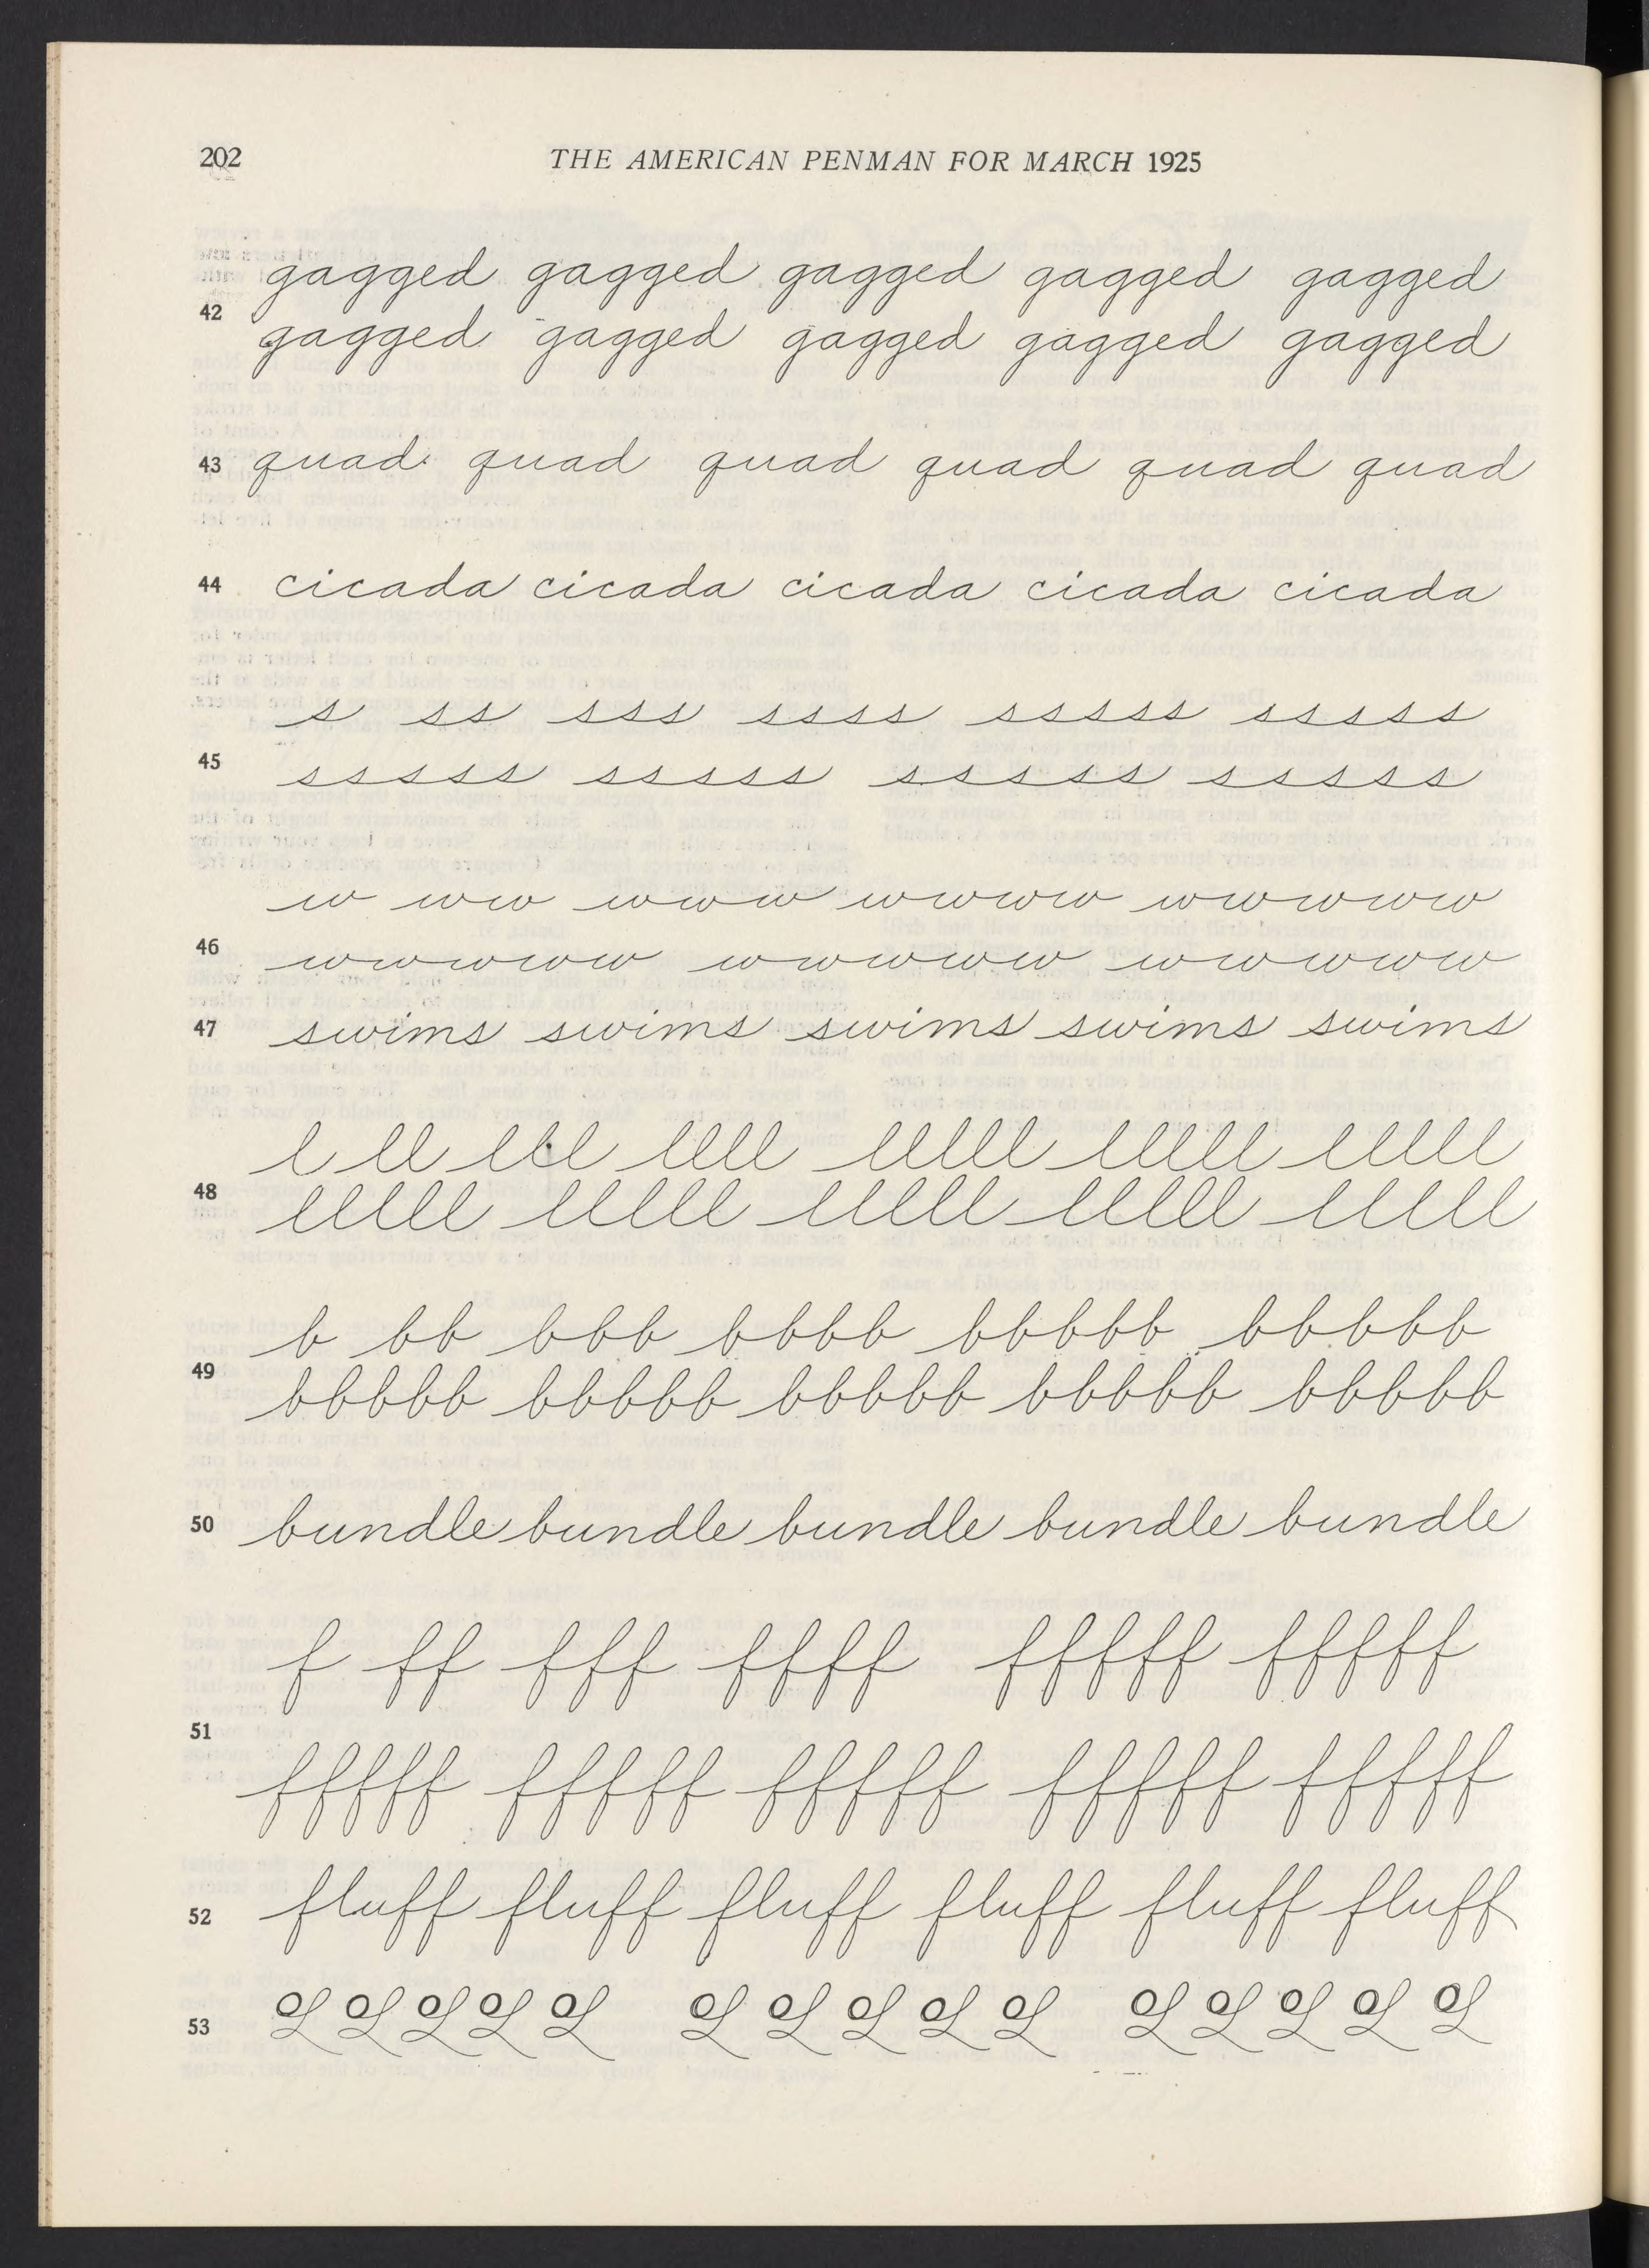 202 THE AMERICAN PENMAN FOR MARCH 1925
gagged gagged gagged gagged gagged
42
gagged gagged gagged gagged gagged
43 quad quad quad quad quad quad
44 cicada cicada cicada cicada cicada
s ss sss ssss sssss sssss
45
sssss sssss sssss sssss
w ww www wwww wwwww
46
wwwww wwwww wwwww
47 swims swims swims swims swims
l ll lll llll lllll lllll lllll
48
lllll lllll lllll lllll lllll
b bb bbb bbbb bbbbb bbbbb
49
bbbbb bbbbb bbbbb bbbbb bbbbb
50 bundle bundle bundle bundle bundle
f ff fff ffff fffff fffff
51
fffff fffff fffff fffff fffff
52 fluff fluff fluff fluff fluff fluff
53 L L L L L L L L L L L L L L L